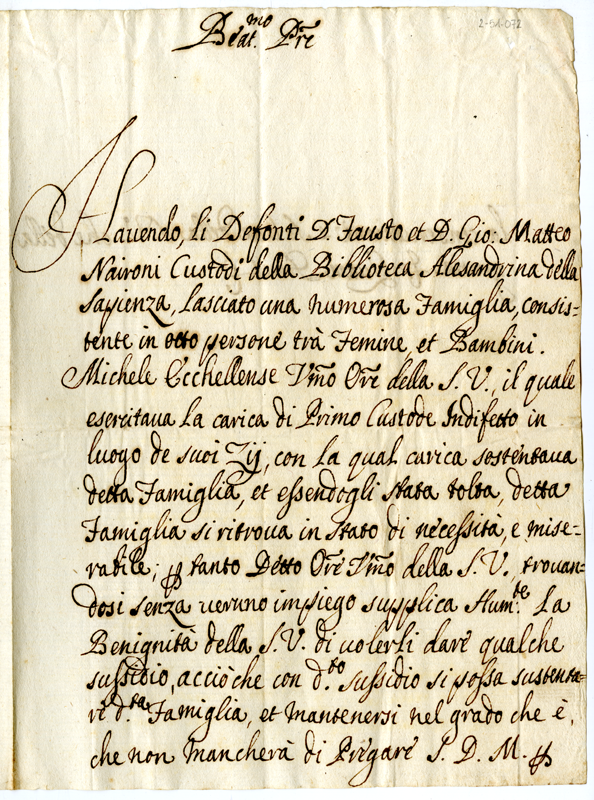 2-51-072
Beat.mo Pre
Havendo, li Defonti D. Fausto et D. Gio: Matteo
Naironi Custodi della Biblioteca Alesandrina della
Sapienza, lasciato una numerosa Famiglia, consis=
tente in otto persone trà Femine, et Bambini.
Michele Ecchellense Vmo Ore della S. V., il quale
esercitaua la carica di Primo Custode Indifetto in
luogo de suoi Zij, con la qual carica sostentaua
detta Famiglia, et essendogli stata tolta, detta
Famiglia si ritroua in stato di necessità, e mise=
rabile; p tanto Detto Ore Vmo della S. V., trouan=
dosi senza ueruno impiego supplica Hum.te La
Benignità della S. V. di uolerli dare qualche
sussidio, acciòche con d.to sussidio si possa sustenta=
re d.ta Famiglia, et mantenersi nel grado che è,
che non mancherà di Pregare S. D. M. p